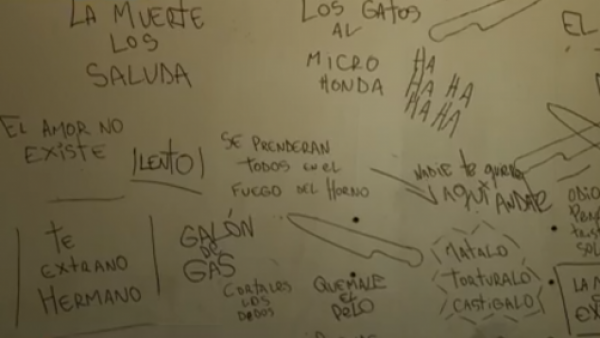 LA MUERTE
LOS
SALUDA
LOS GATOS
AL
MICRO
HONDA
HA
HA HA
HA HA
EL
EL AMOR NO
EXISTE
LENTO
SE PRENDERAN
TODOS EN EL
FUEGO DEL HORNO
NADIE te quiere
AQUÍ
ANDAR
ODIO
TE
EXTRANO
HERMANO
GALÓN
DE
GAS
CORTALES
LOS
DEDOS
QUEMALE
EL
PELO
MATALO
TORTURALO
CASTIGALO
LA